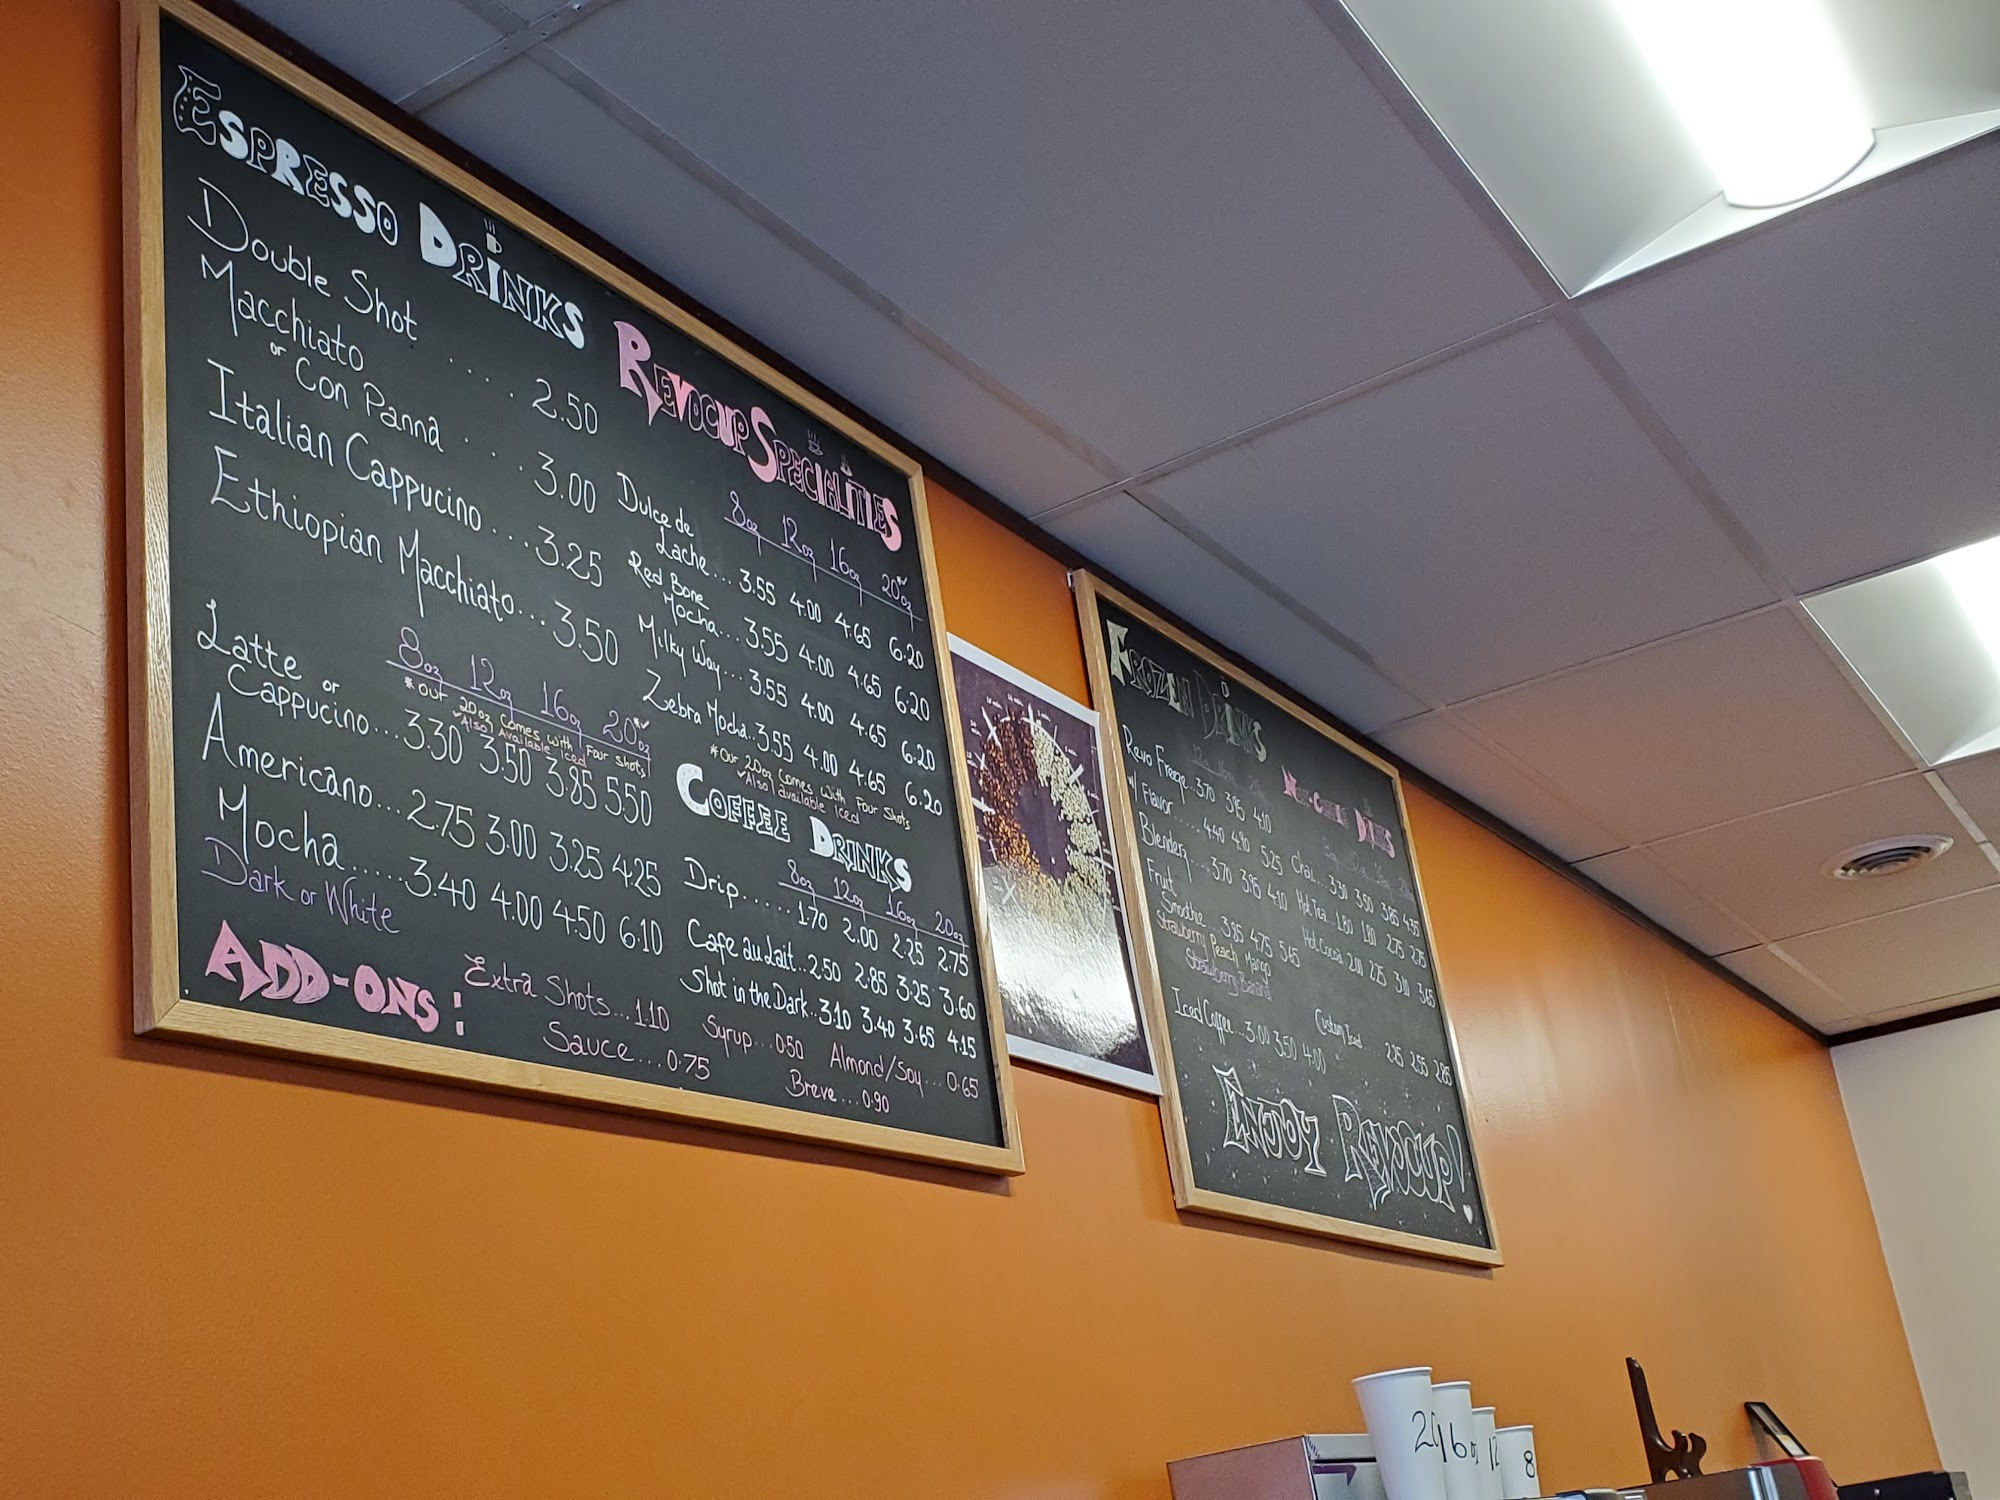 Espresso Drinks
Double Shot .... 2.50
Macchiato
or Con Panna .... 3.00
Italian Cappucino ... 3.25
Ethiopian Macchiato... 3.50
8oz 12oz 16oz 20oz
*Our 20oz comes with Four Shots
✓Also Available iced
Latte or
Cappucino... 3.30 3.50 3.85 5.50
Americano... 2.75 3.00 3.25 4.25
Mocha...... 3.40 4.00 4.50 6.10
Dark or White
Add-ons:
Extra Shots... 1.10
Sauce... 0.75
Syrup... 0.50
Breve... 0.90
Almond/Soy... 0.65
Revocup Specialities
8oz 12oz 16oz 20oz
Dulce de
Lache... 3.55 4.00 4.65 6.20
Red Bone
Mocha... 3.55 4.00 4.65 6.20
Milky Way... 3.55 4.00 4.65 6.20
Zebra Mocha.. 3.55 4.00 4.65 6.20
*Our 20oz comes with Four Shots
✓Also available iced
Coffee Drinks
8oz 12oz 16oz 20oz
Drip...... 1.70 2.00 2.25 2.75
Cafe au Lait.. 2.50 2.85 3.25 3.60
Shot in the Dark.. 3.10 3.40 3.65 4.15
Frozen Drinks
Revo Freeze.. 3.70 3.95 4.10
w/ Flavor..... 4.40 4.80 5.25
Blenderz.... 3.70 3.95 4.10
Fruit
Smoothie... 3.85 4.75 5.65
Strawberry Peach Mango
Strawberry Banana
Iced Coffee... 3.00 3.50 4.00
Non-Coffee Drinks
Chai.... 3.30 3.50 3.85 4.35
Hot Tea.. 1.80 1.80 2.75 2.75
Hot Cocoa 2.00 2.25 3.10 3.65
2.55 2.85
Enjoy Revocup!
20
16oz
12
8